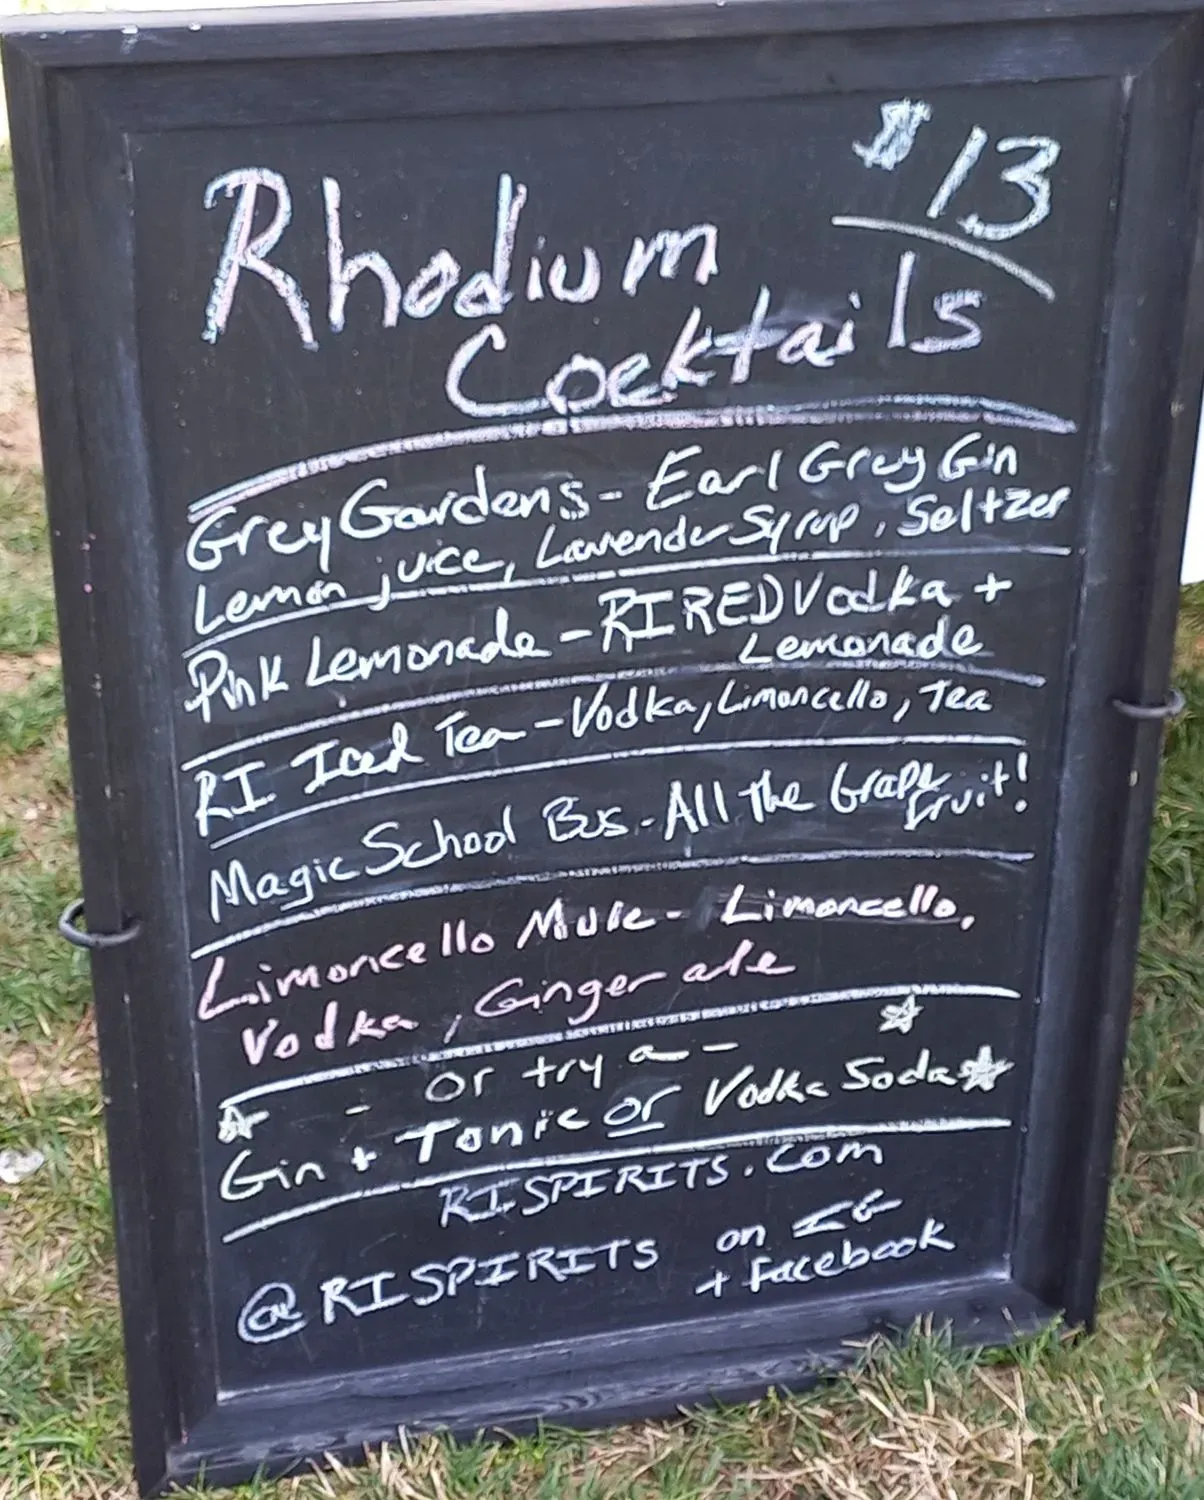 $13
Rhodium
Cocktails
Grey Gardens - Earl Grey Gin
Lemon juice, Lavender Syrup, Seltzer
Pink Lemonade - RI RED Vodka +
Lemonade
RI Iced Tea - Vodka, Limoncello, Tea
Magic School Bus - All the Grape
fruit!
Limoncello Mule - Limoncello,
Vodka, Ginger ale
- or try a -
Gin + Tonic or Vodka Soda
RISPIRITS.com
@RISPIRITS on IG
+ Facebook